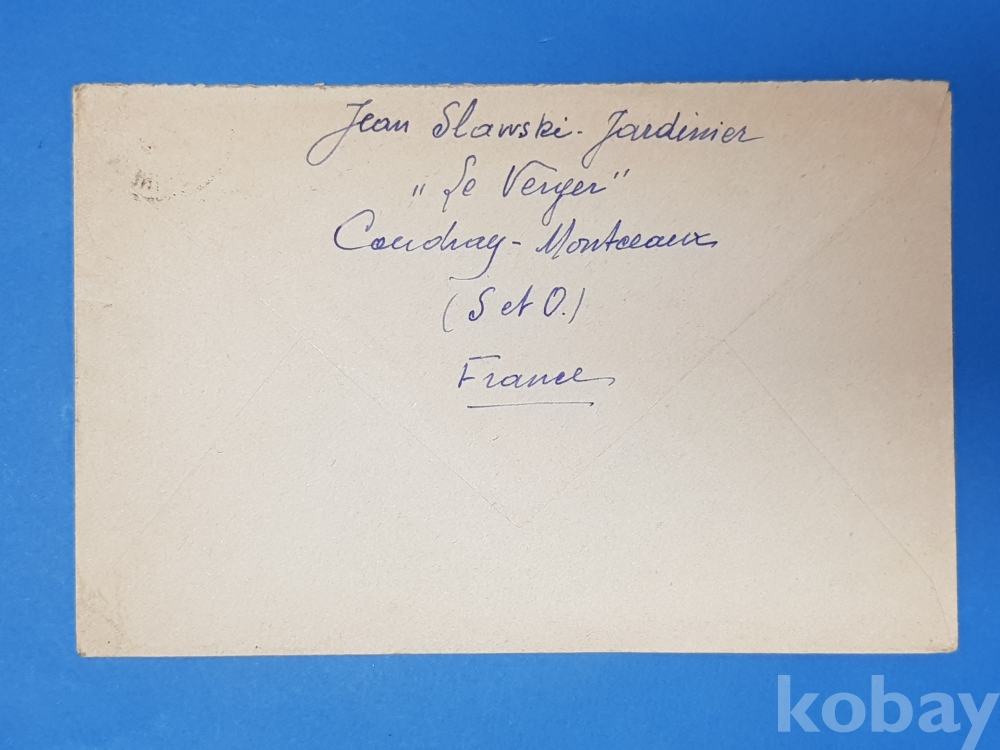 Jean Slawski - Jardinier
"Le Verger"
Coudray - Montceaux
(S et O.)
France
kobay